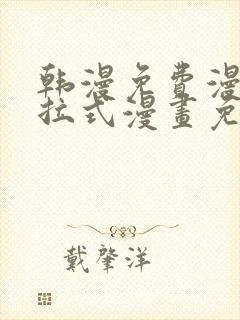 韩漫免费漫
拉式漫畫免
戴肇洋